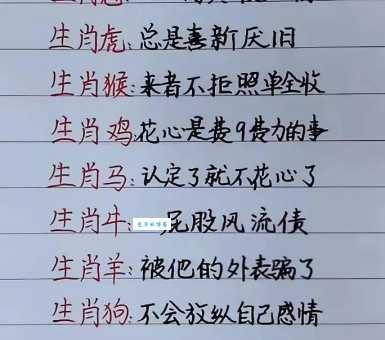 生肖虎:总是喜新厌旧
生肖猴:来者不拒照单全收
生肖鸡:花心是费9费力的事
生肖马:认定了就不花心了
生肖牛: 屁股风流债
生肖羊:被他的外表骗了
生肖狗:不会放纵自己感情